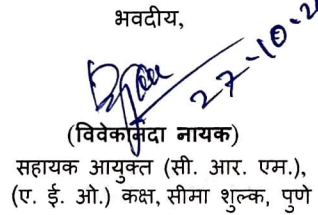 भवदीय,
27-10-2
(विवेकानंदा नायक)
सहायक आयुक्त (सी. आर. एम.),
(ए. ई. ओ.) कक्ष, सीमा शुल्क, पुणे